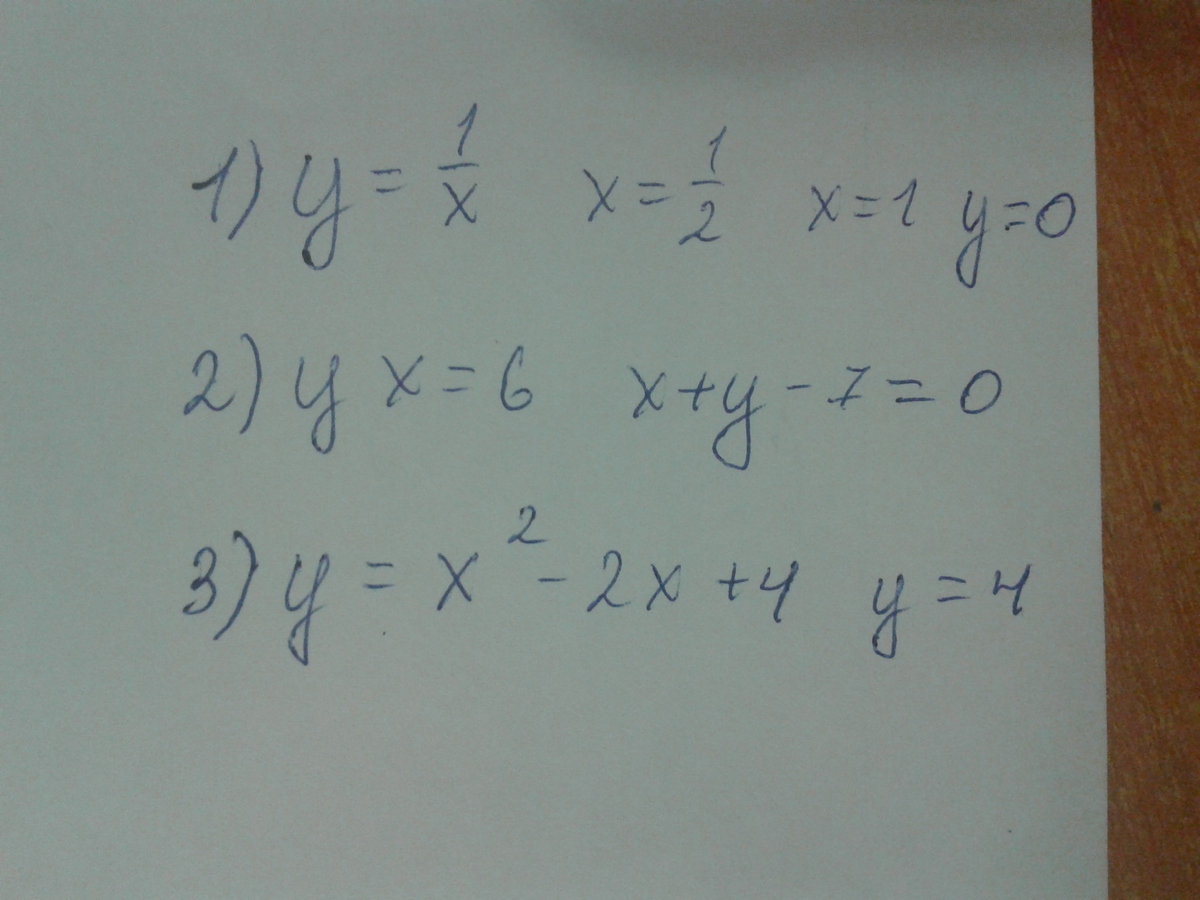 1) y = 1/x x = 1/2 x = 1 y = 0
2) y x = 6 x + y - 7 = 0
3) y = x² - 2x + 4 y = 4